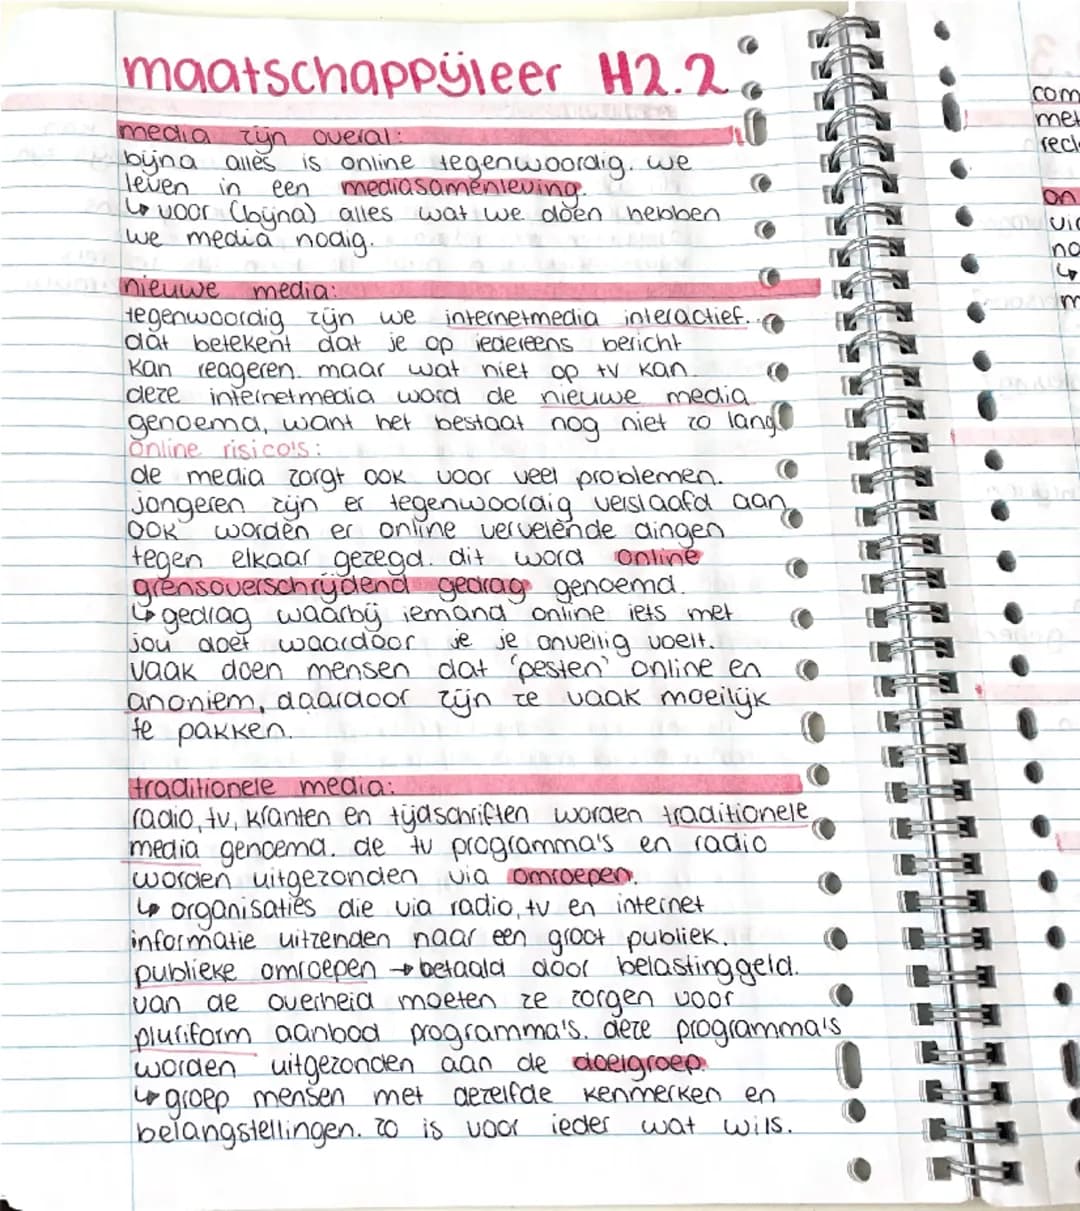 maatschappijleer H2.2
media zijn overal:
bijna alles is online tegenwoordig. we
leven in een mediasamenleving.
↳ voor (bijna) alles wat we doen hebben
we media nodig.
nieuwe media:
tegenwoordig zijn we internetmedia interactief.
dat betekent dat je op iedereens bericht
kan reageren. maar wat niet op tv kan.
deze internetmedia word de nieuwe media
genoemd, want het bestaat nog niet zo lang
online risico's:
de media zorgt ook voor veel problemen.
jongeren zijn er tegenwoordig verslaafd aan,
ook worden er online vervelende dingen
tegen elkaar gezegd. dit word online
grensoverschrijdend gedrag genoemd.
↳ gedrag waarbij iemand online iets met
jou doet waardoor je je onveilig voelt.
vaak doen mensen dat 'pesten' online en
anoniem, daardoor zijn ze vaak moeilijk
te pakken.
traditionele media:
radio, tv, kranten en tijdschriften worden traditionele
media genoemd. de tv programma's en radio
worden uitgezonden via omroepen.
↳ organisaties die via radio, tv en internet
informatie uitzenden naar een groot publiek.
publieke omroepen → betaald door belastinggeld.
van de overheid moeten ze zorgen voor
pluriform aanbod programma's. deze programma's
worden uitgezonden aan de doelgroep.
↳ groep mensen met dezelfde kenmerken en
belangstellingen. zo is voor ieder wat wils.
com
met
on